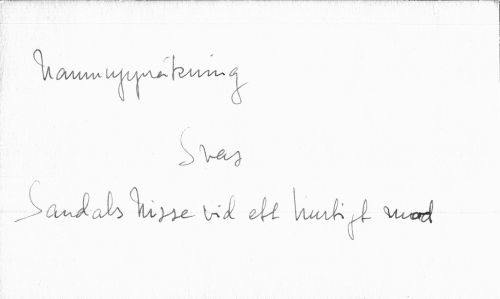 Namnuppräkning
Svar
Sandals Nisse vid ett hurtigt mod